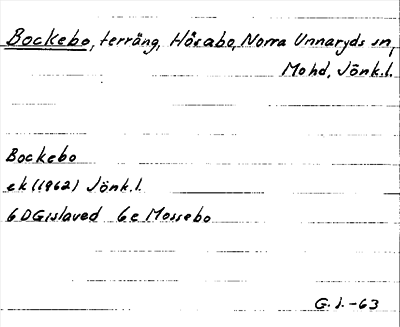 Bockebo, terräng, Hösabo, Norra Unnaryds sn,
Mohd, Jönk.l.
Bockebo
ek (1962) Jönk.l.
6 D Gislaved 6e Mossebo
G.J.-63